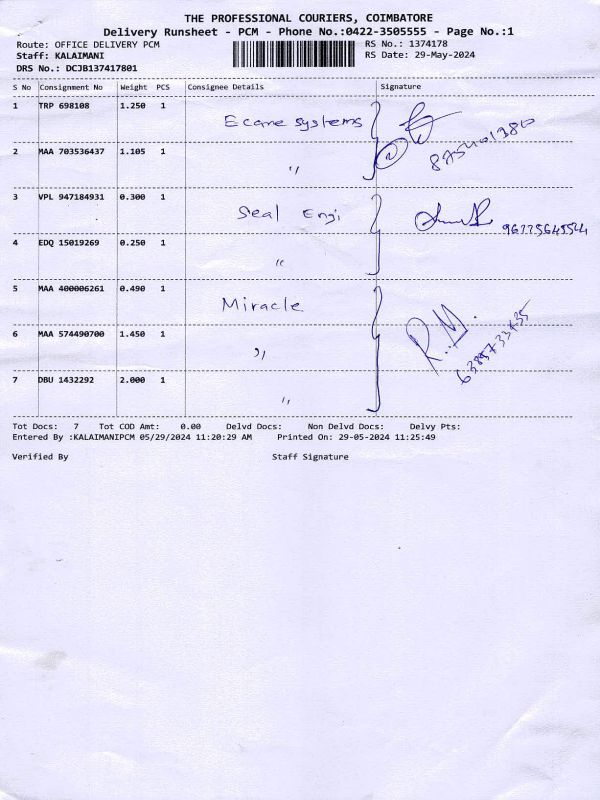 THE PROFESSIONAL COURIERS, COIMBATORE
Delivery Runsheet - PCM - Phone No.:0422-3505555 - Page No.:1
Route: OFFICE DELIVERY PCM RS No.: 1374178
Staff: KALAIMANI RS Date: 29-May-2024
DRS No.: DCJB137417801
S No Consignment No Weight PCS Consignee Details Signature
1 TRP 698108 1.250 1 Ecane systems
2 MAA 703536437 1.105 1 "
3 VPL 947184931 0.300 1 Seal Engi
4 EDQ 15019269 0.250 1 "
5 MAA 400006261 0.490 1 Miracle
6 MAA 574490700 1.450 1 " R.M.
7 DBU 1432292 2.000 1 "
Tot Docs: 7 Tot COD Amt: 0.00 Delvd Docs: Non Delvd Docs: Delvy Pts:
Entered By :KALAIMANIPCM 05/29/2024 11:20:29 AM Printed On: 29-05-2024 11:25:49
Verified By Staff Signature